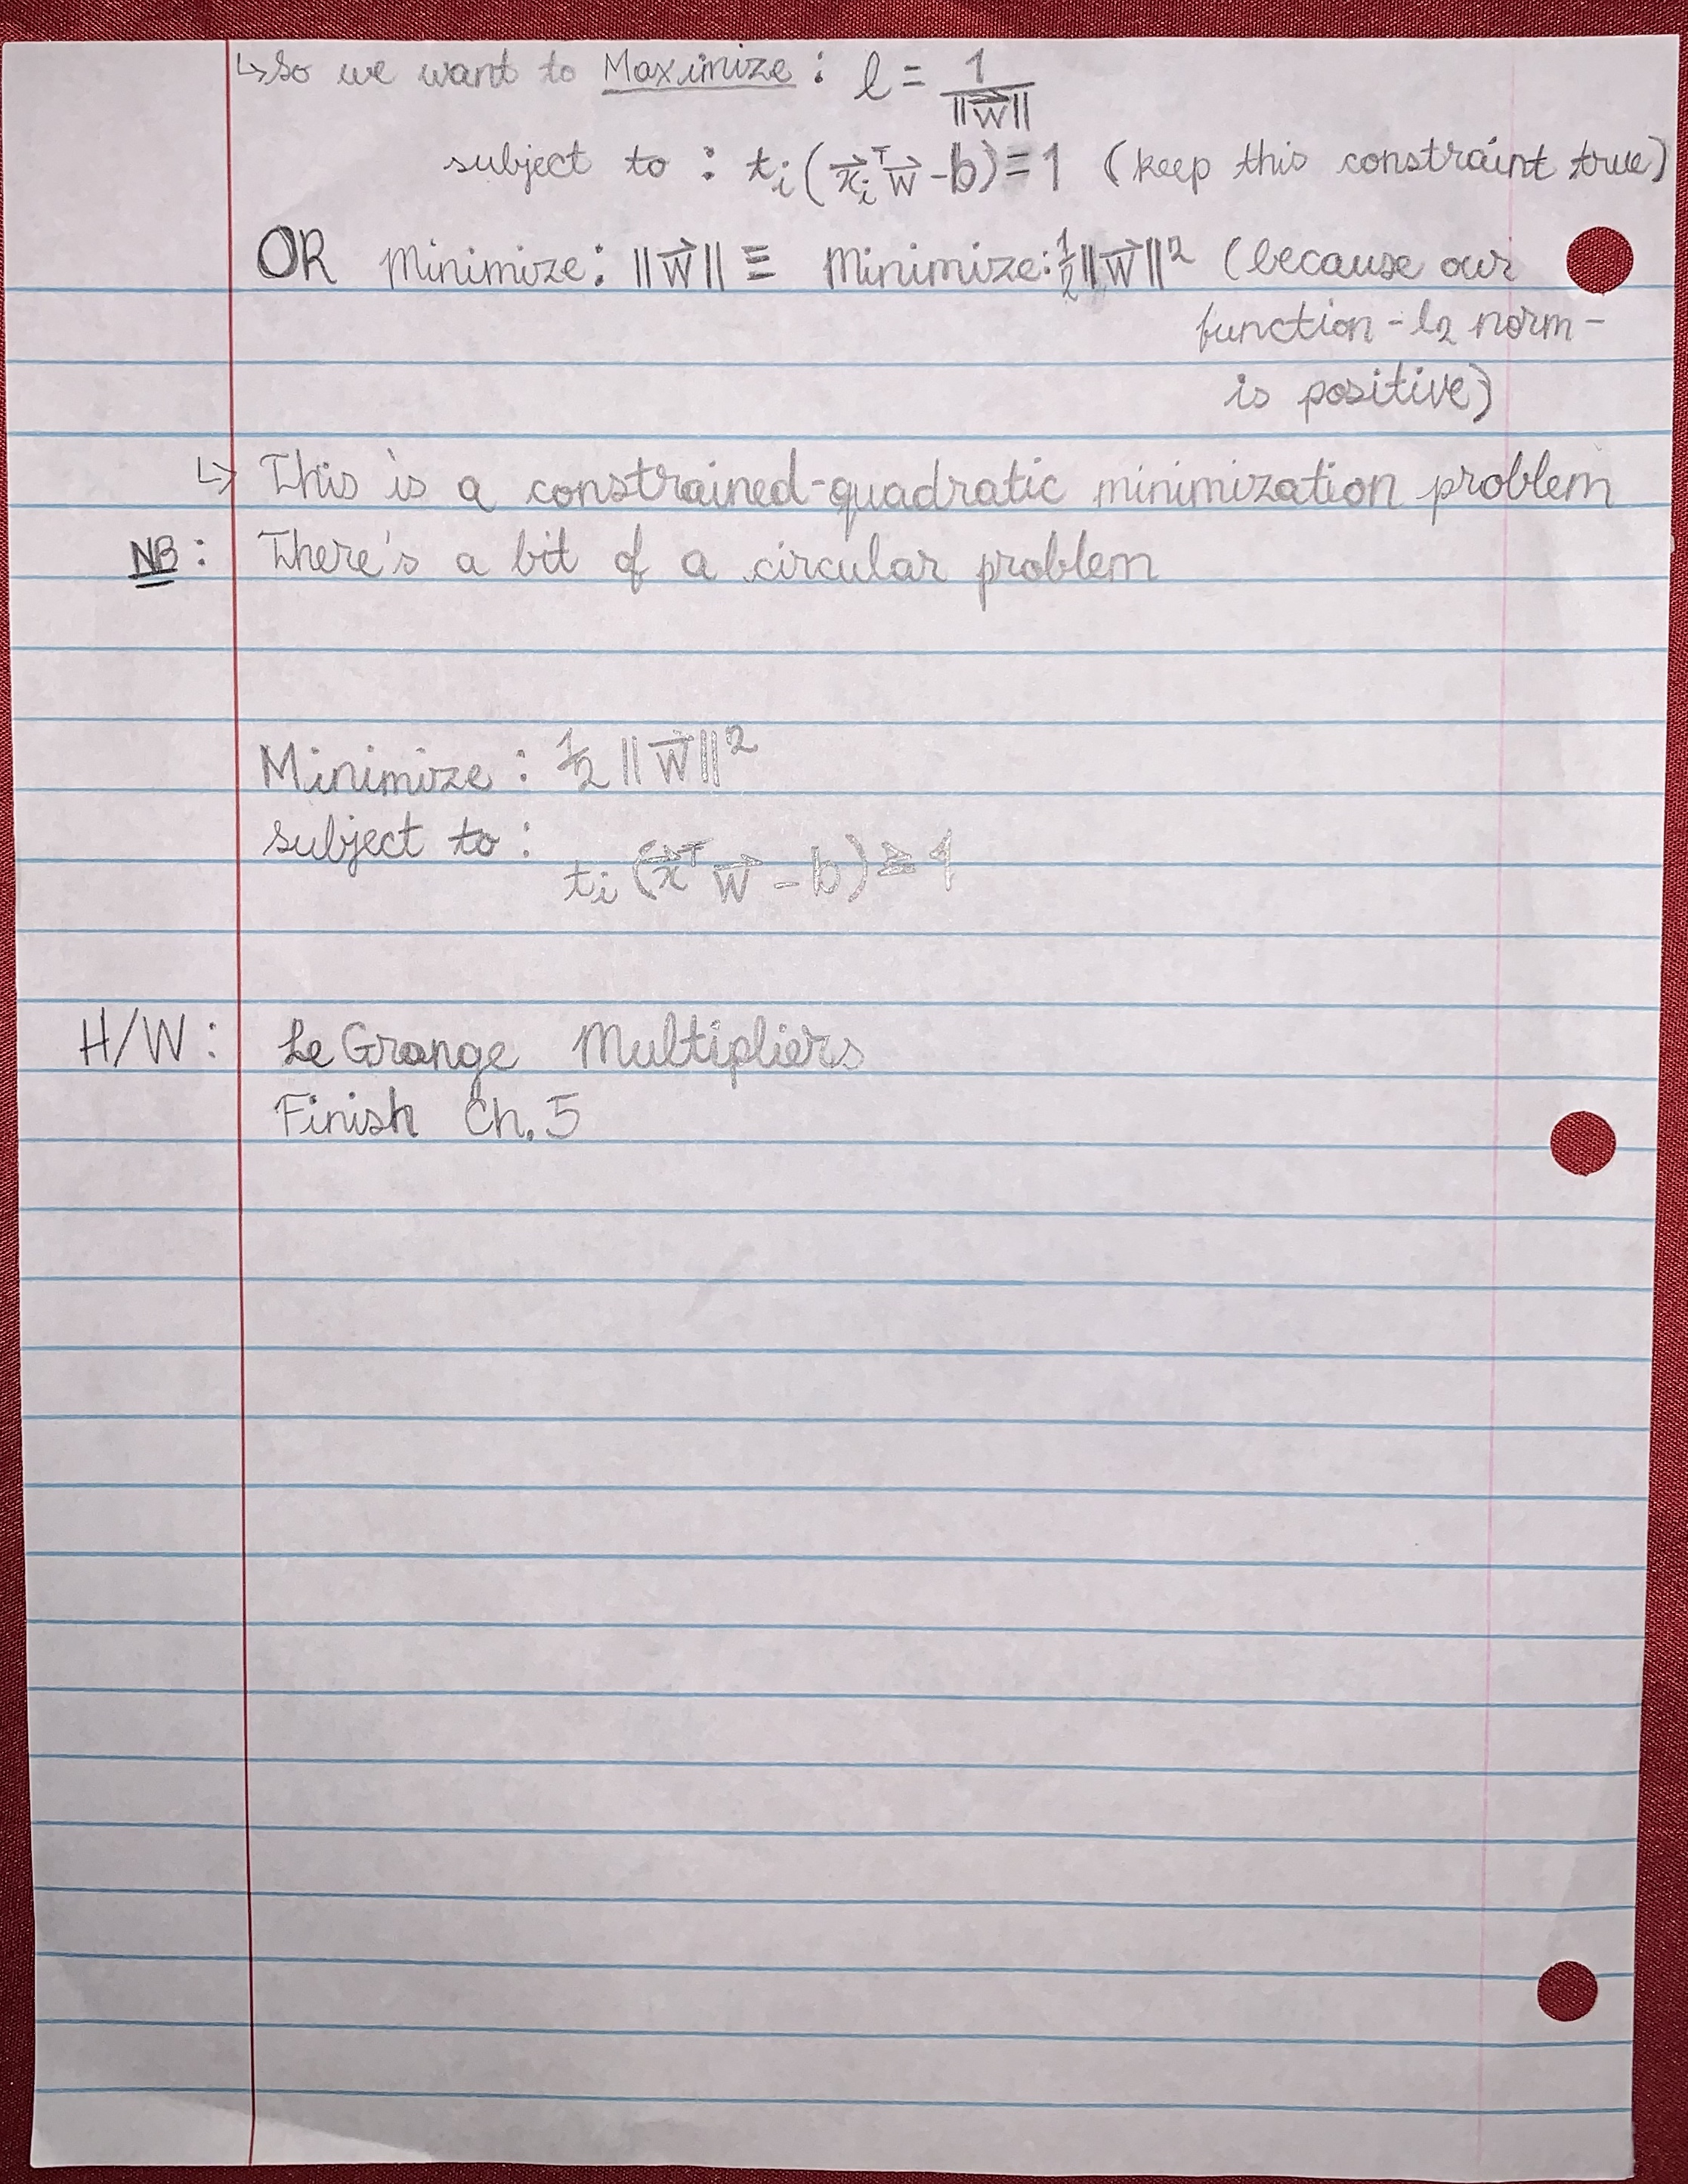 ↳ So we want to Maximize : l = 1/||w⃗||
subject to : tᵢ(x⃗ᵢᵀw⃗ - b) = 1 (keep this constraint true)
OR Minimize: ||w⃗|| ≡ Minimize: ½||w⃗||² (because our
function - l₂ norm -
is positive)
↳ This is a constrained-quadratic minimization problem
NB: There's a bit of a circular problem
Minimize : ½ ||w⃗||²
subject to :
tᵢ (x⃗ᵀw⃗ - b) ≥ 1
H/W: LeGrange Multipliers
Finish Ch. 5